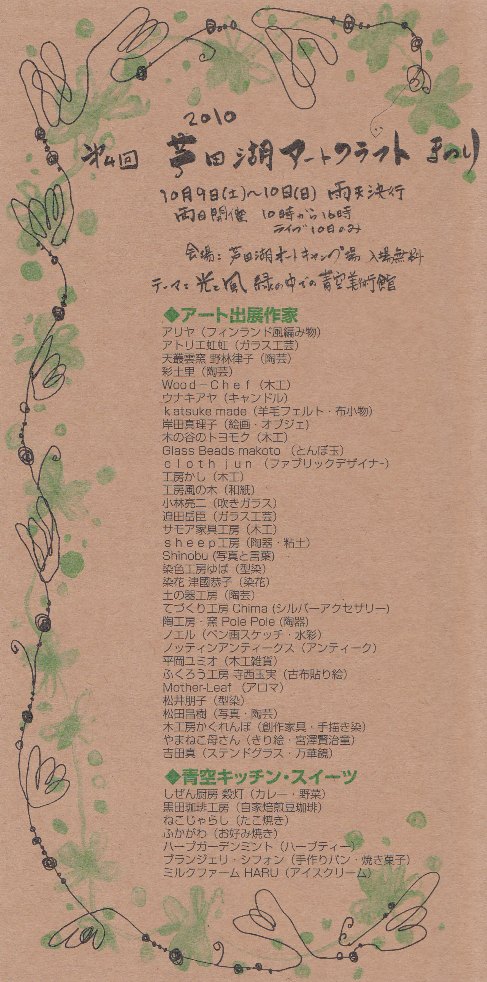 2010
第4回 芦田湖アートクラフト まつり
10月9日(土)〜10日(日) 雨天決行
両日開催 10時から16時
ライブ10日のみ
会場：芦田湖オートキャンプ場 入場無料
テーマ：光と風 緑の中での青空美術館
◆アート出展作家
アリヤ（フィンランド風編み物）
アトリエ虹虹（ガラス工芸）
天叢雲窯 野林律子（陶芸）
彩土里（陶芸）
Wood－Chef（木工）
ウナキアヤ（キャンドル）
katsuke made（羊毛フェルト・布小物）
岸田真理子（絵画・オブジェ）
木の谷のトヨモク（木工）
Glass Beads makoto （とんぼ玉）
cloth jun （ファブリックデザイナー）
工房かし（木工）
工房風の木（和紙）
小林亮二（吹きガラス）
迫田岳臣（ガラス工芸）
サモア家具工房（木工）
sheep工房（陶器・粘土）
Shinobu (写真と言葉)
染色工房ゆば（型染）
染花 津國恭子（染花）
土の器工房（陶芸）
てづくり工房 Chima (シルバーアクセサリー)
陶工房・窯 Pole Pole (陶器)
ノエル（ペン画スケッチ・水彩）
ノッティンアンティークス（アンティーク）
平岡ユミオ（木工雑貨）
ふくろう工房 寺西玉実（古布貼り絵）
Mother-Leaf （アロマ）
松井朋子（型染）
松田昌樹（写真・陶芸）
木工房かくれんぼ（創作家具・手描き染）
やまねこ母さん（きり絵・宮澤賢治童）
吉田真（ステンドグラス・万華鏡）
◆青空キッチン・スイーツ
しぜん厨房 穀灯（カレー・野菜）
黒田珈琲工房（自家焙煎豆珈琲）
ねこじゃらし（たこ焼き）
ふかがわ（お好み焼き）
ハーブガーデンミント（ハーブティー）
ブランジェリ・シフォン（手作りパン・焼き菓子）
ミルクファーム HARU（アイスクリーム）